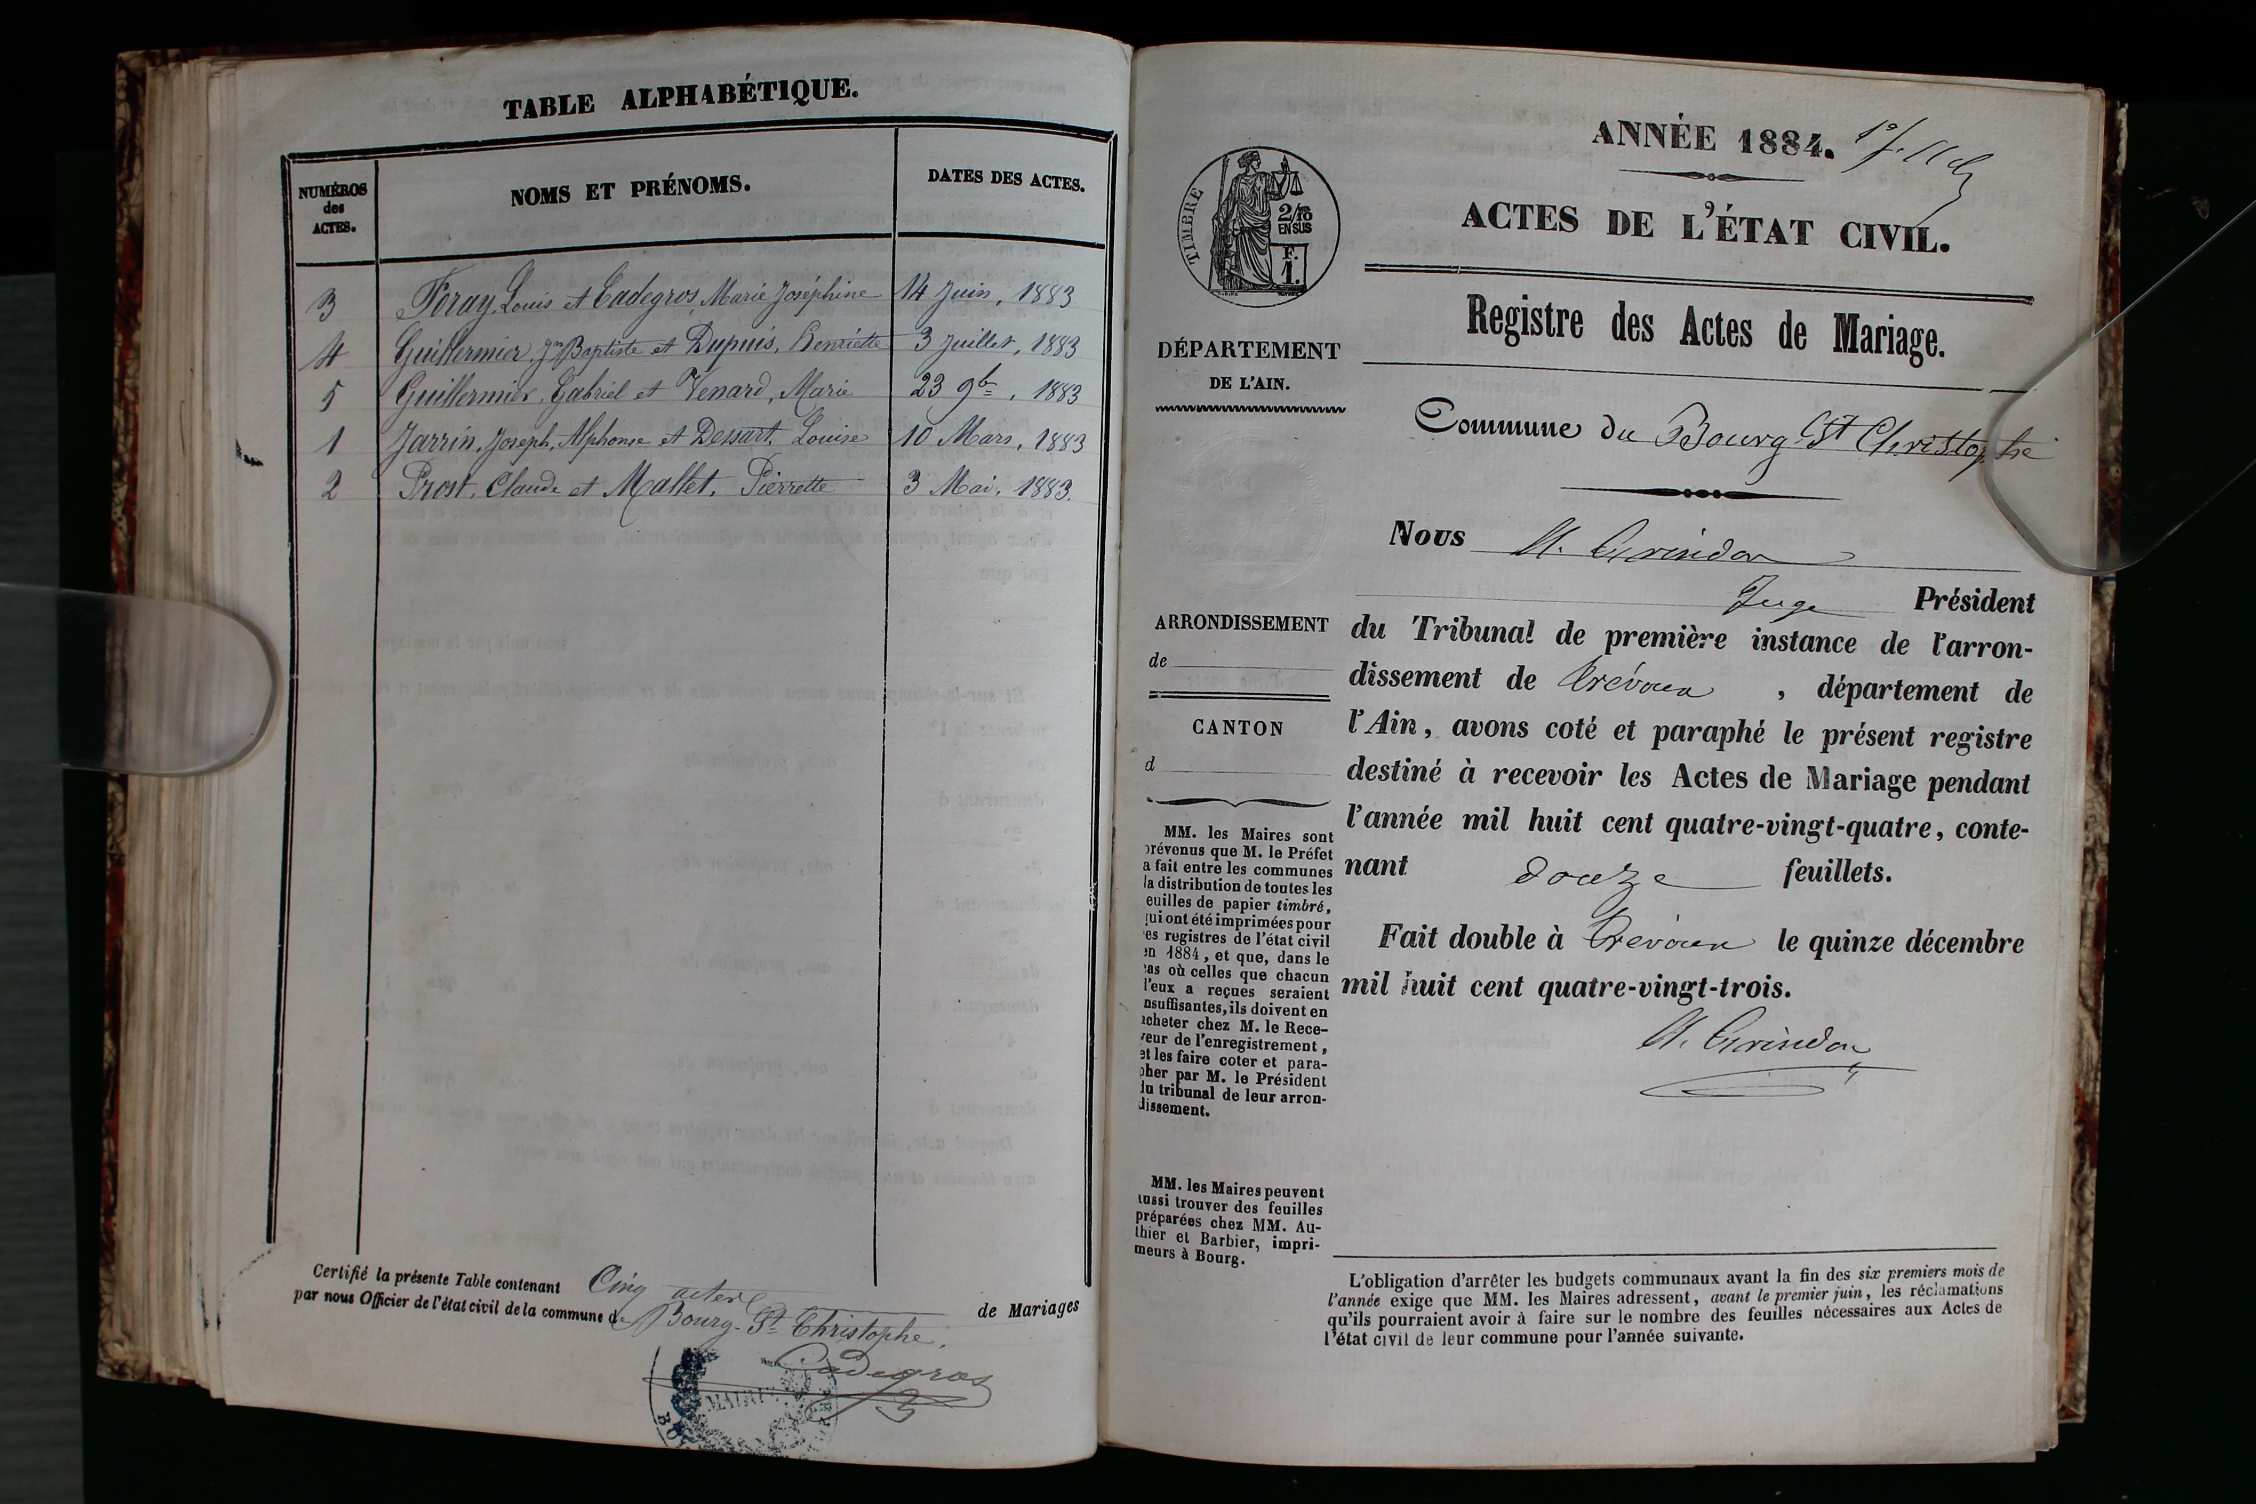 TABLE ALPHABÉTIQUE.
NUMÉROS
des
ACTES.
NOMS ET PRÉNOMS.
DATES DES ACTES.
3 Foray, Louis et Cadegros, Marie Joséphine 14 Juin, 1883
4 Guillermier, Jn Baptiste et Dupuis, Henriette 3 Juillet, 1883
5 Guillermier, Gabriel et Venard, Marie 23 9bre, 1883
1 Jarrin, Joseph, Alphonse et Dessart, Louise 10 Mars, 1883
2 Prost, Claude et Mallet, Pierrette 3 Mai, 1883.
Certifié la présente Table contenant Cinq actes de Mariages
par nous Officier de l'état civil de la commune de Bourg-St-Christophe.
Cadegros
MAIRIE
ANNÉE 1884.
ACTES DE L'ÉTAT CIVIL.
TIMBRE
2/10
EN SUS
F.
1.
Registre des Actes de Mariage.
DÉPARTEMENT
DE L'AIN.
Commune du Bourg-St Christophe
Nous
Juge Président
ARRONDISSEMENT
de
CANTON
d
du Tribunal de première instance de l'arron-
dissement de Trévoux , département de
l'Ain, avons coté et paraphé le présent registre
destiné à recevoir les Actes de Mariage pendant
l'année mil huit cent quatre-vingt-quatre, conte-
nant douze feuillets.
Fait double à Trévoux le quinze décembre
mil huit cent quatre-vingt-trois.
MM. les Maires sont
prévenus que M. le Préfet
a fait entre les communes
la distribution de toutes les
euilles de papier timbré,
qui ont été imprimées pour
es registres de l'état civil
en 1884, et que, dans le
cas où celles que chacun
d'eux a reçues seraient
nsuffisantes, ils doivent en
acheter chez M. le Rece-
veur de l'enregistrement,
et les faire coter et para-
pher par M. le Président
du tribunal de leur arron-
dissement.
MM. les Maires peuvent
aussi trouver des feuilles
préparées chez MM. Au-
thier et Barbier, impri-
meurs à Bourg.
L'obligation d'arrêter les budgets communaux avant la fin des six premiers mois de
l'année exige que MM. les Maires adressent, avant le premier juin, les réclamations
qu'ils pourraient avoir à faire sur le nombre des feuilles nécessaires aux Actes de
l'état civil de leur commune pour l'année suivante.